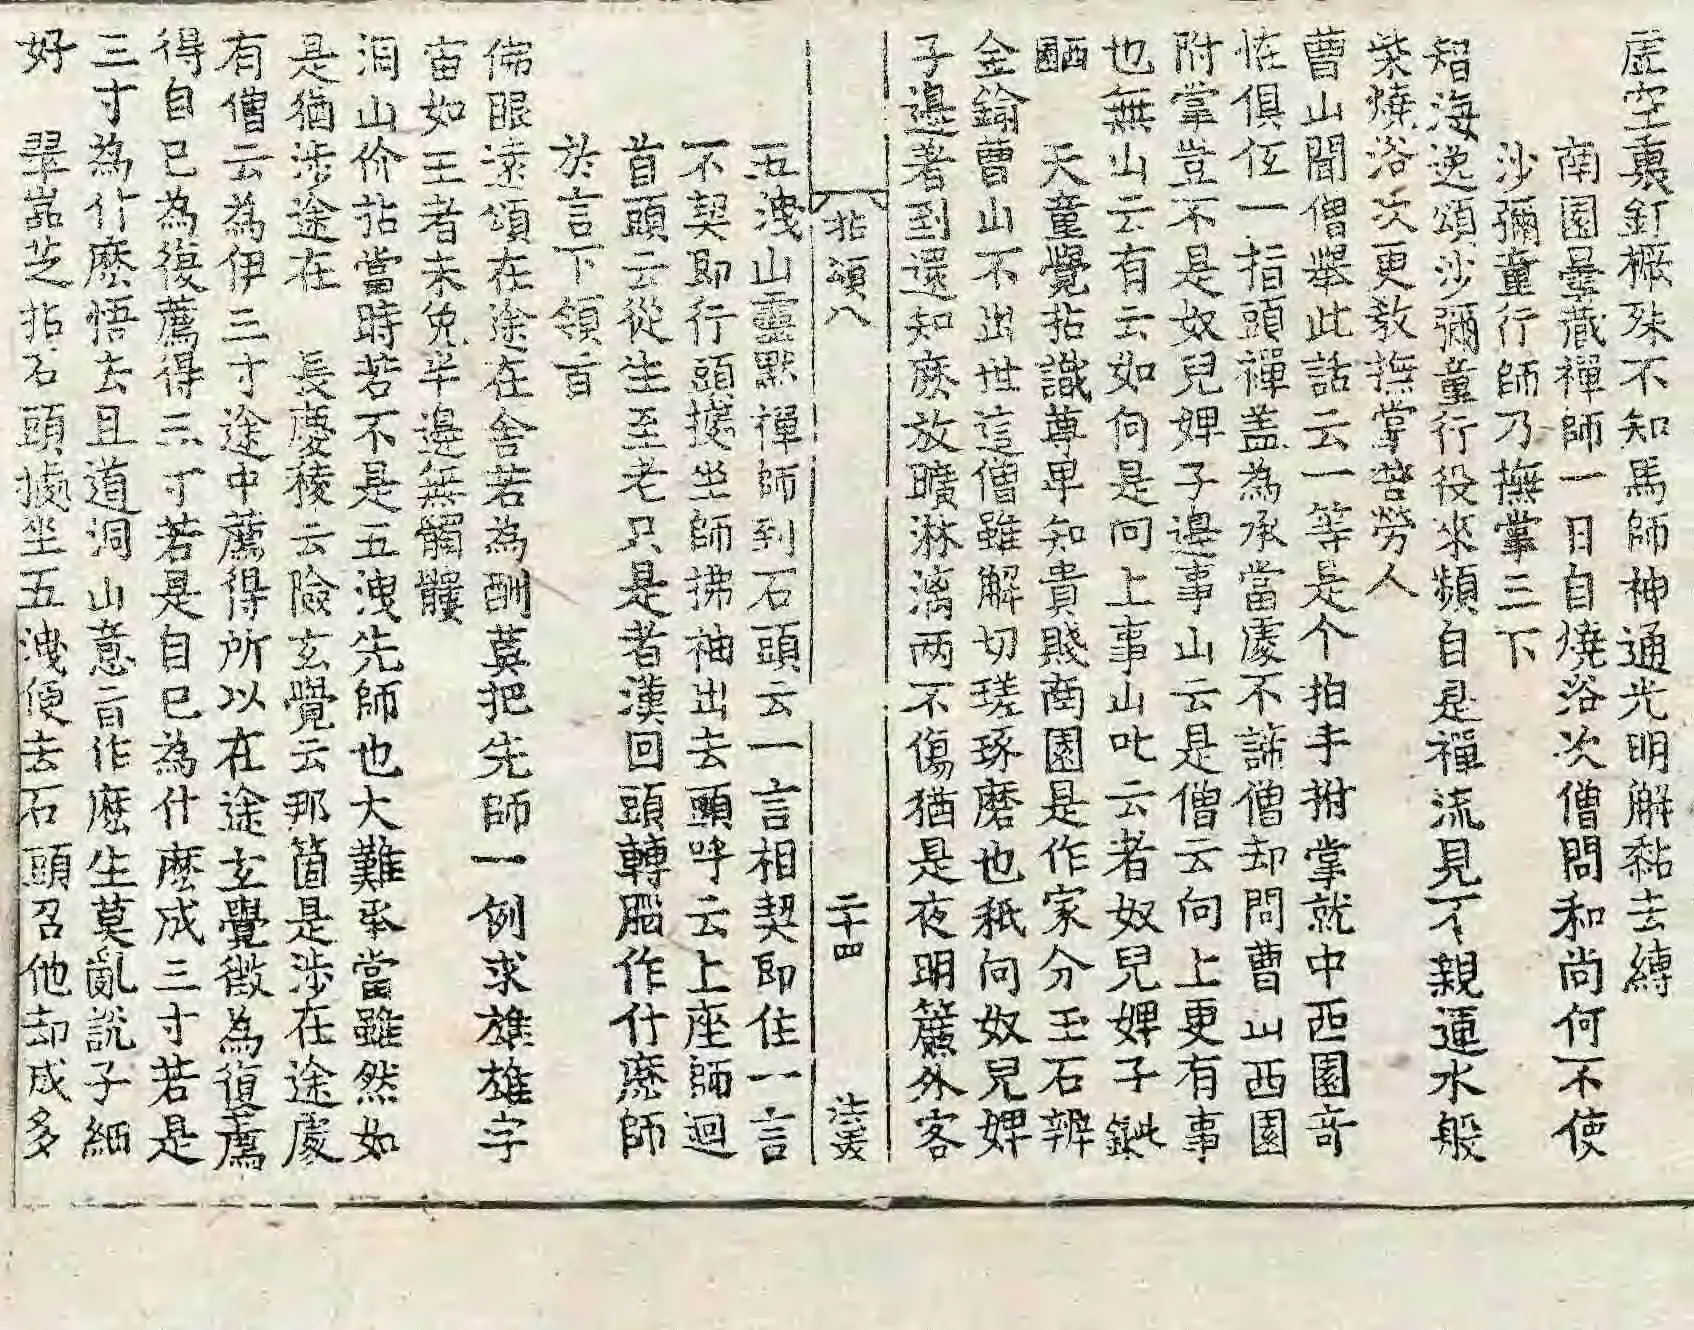 虛空裏釘橛殊不知馬師神通光明解黏去縛
南園曇藏禪師一日自燒浴次僧問和尚何不使
沙彌童行師乃撫掌三下
智海逸頌沙彌童行役來頻自是禪流見不親逼水般
柴燒浴次更敎撫掌謍勞人
曹山聞僧舉此話云一等是个拍手拊掌就中西園奇
恠俱伍一指頭禪盖為承當處不諦僧却問曹山西園
附掌豈不是奴兒婢子邊事山云是僧云向上更有事
也無山云有云如何是向上事山叱云者奴兒婢子
天童覺拈識尊卑知貴賤南園是作家分玉石辨
金鍮曹山不出世這僧雖解切瑳琢磨也秪向奴兒婢
子邊著到還知麽放曠淋漓两不傷猶是夜明簾外客
拈頌八 二十四 法英
五洩山靈默禪師到石頭云一言相契即住一言
不契即行頭據坐師拂袖出去頭呼云上座師迴
首頭云從生至老只是者漢回頭轉腦作什麽師
於言下領旨
佛眼遠頌在途在舍若為酬莫把先師一例求雄雄宇
宙如王者未免半邊無髑髏
洞山价拈當時若不是五洩先師也大難承當雖然如
是猶涉途在 長慶稜云險玄覺云那箇是涉在途處
有僧云為伊三寸途中薦得所以在途玄覺徵為復薦
得自巳為復薦得三寸若是自巳為什麽成三寸若是
三寸為什麽悟去且道洞山意旨作麽生莫亂說子細
好 翠嵓芝拈石頭據坐五洩便去石頭召他却成多